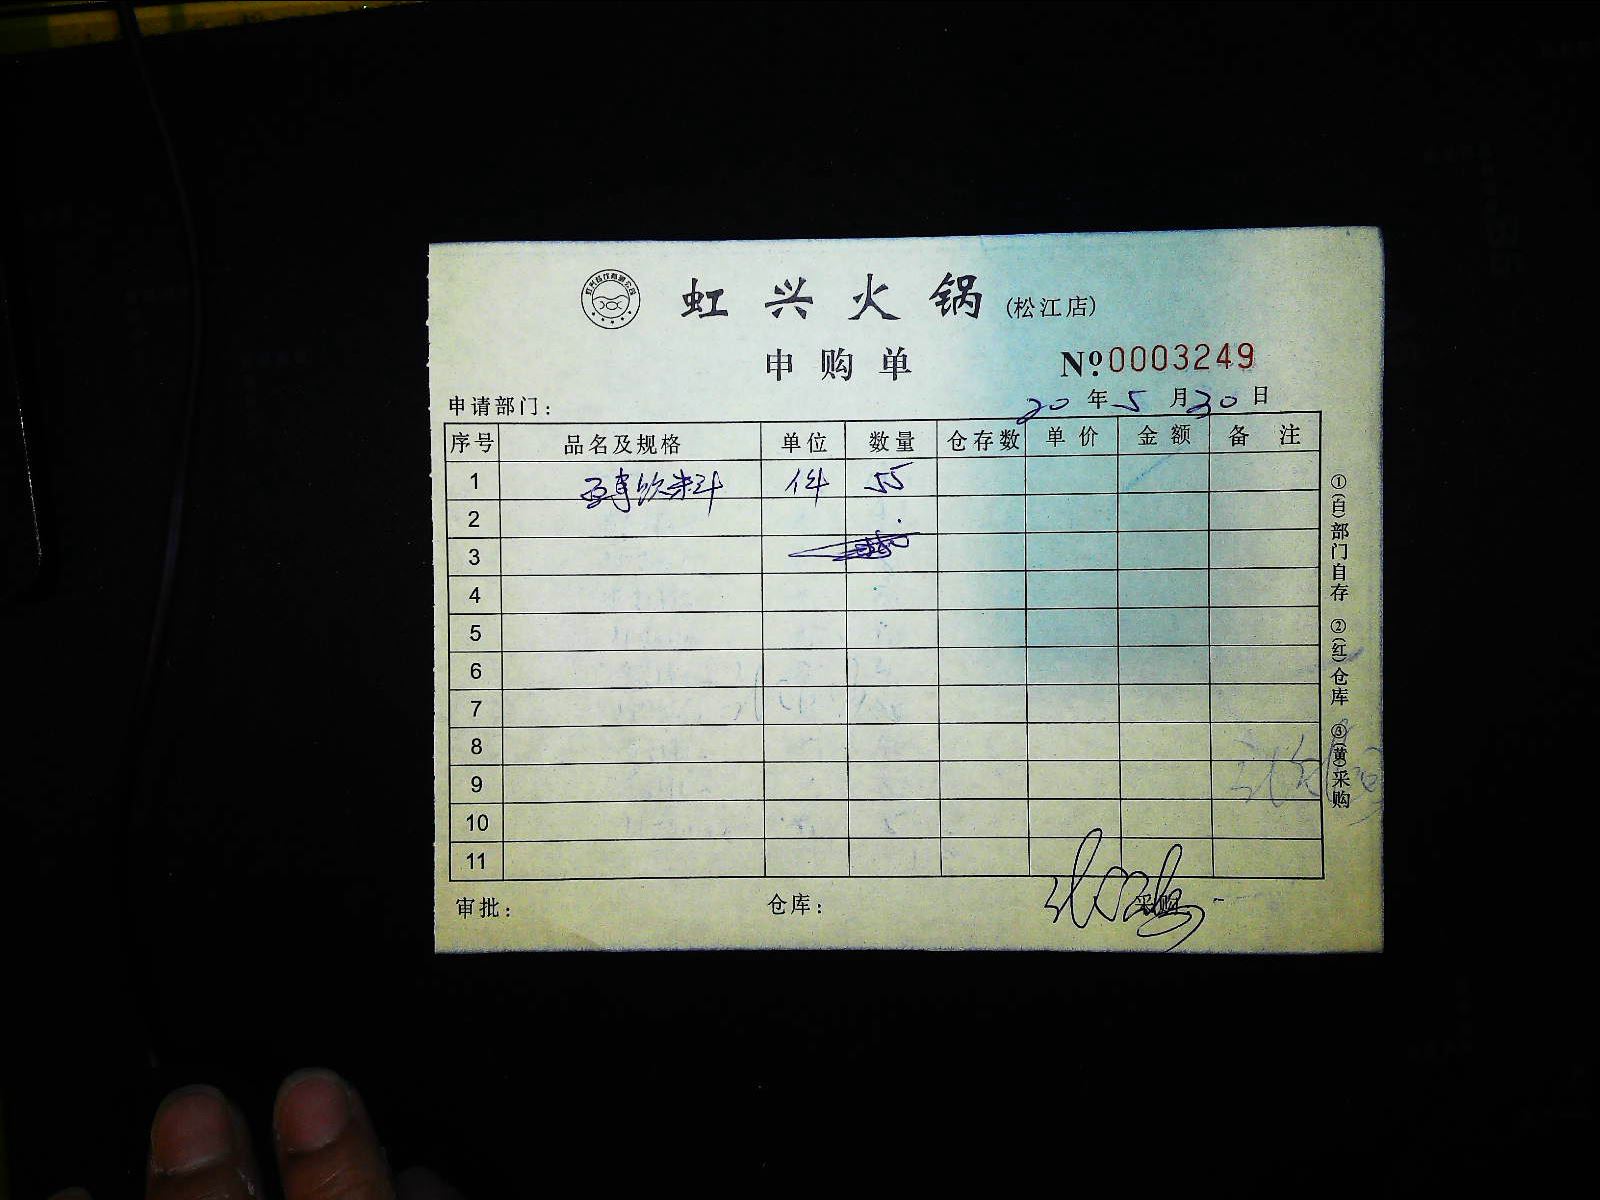 虹兴火锅(松江店)
申购单
№0003249
申请部门:
20年5月30日
序号 品名及规格 单位 数量 仓存数 单价 金额 备注
1 饮料 件 55
2
3
4
5
6
7
8
9
10
11
审批: 仓库: 采购
①(白)部门自存 ②(红)仓库 ③(黄)采购